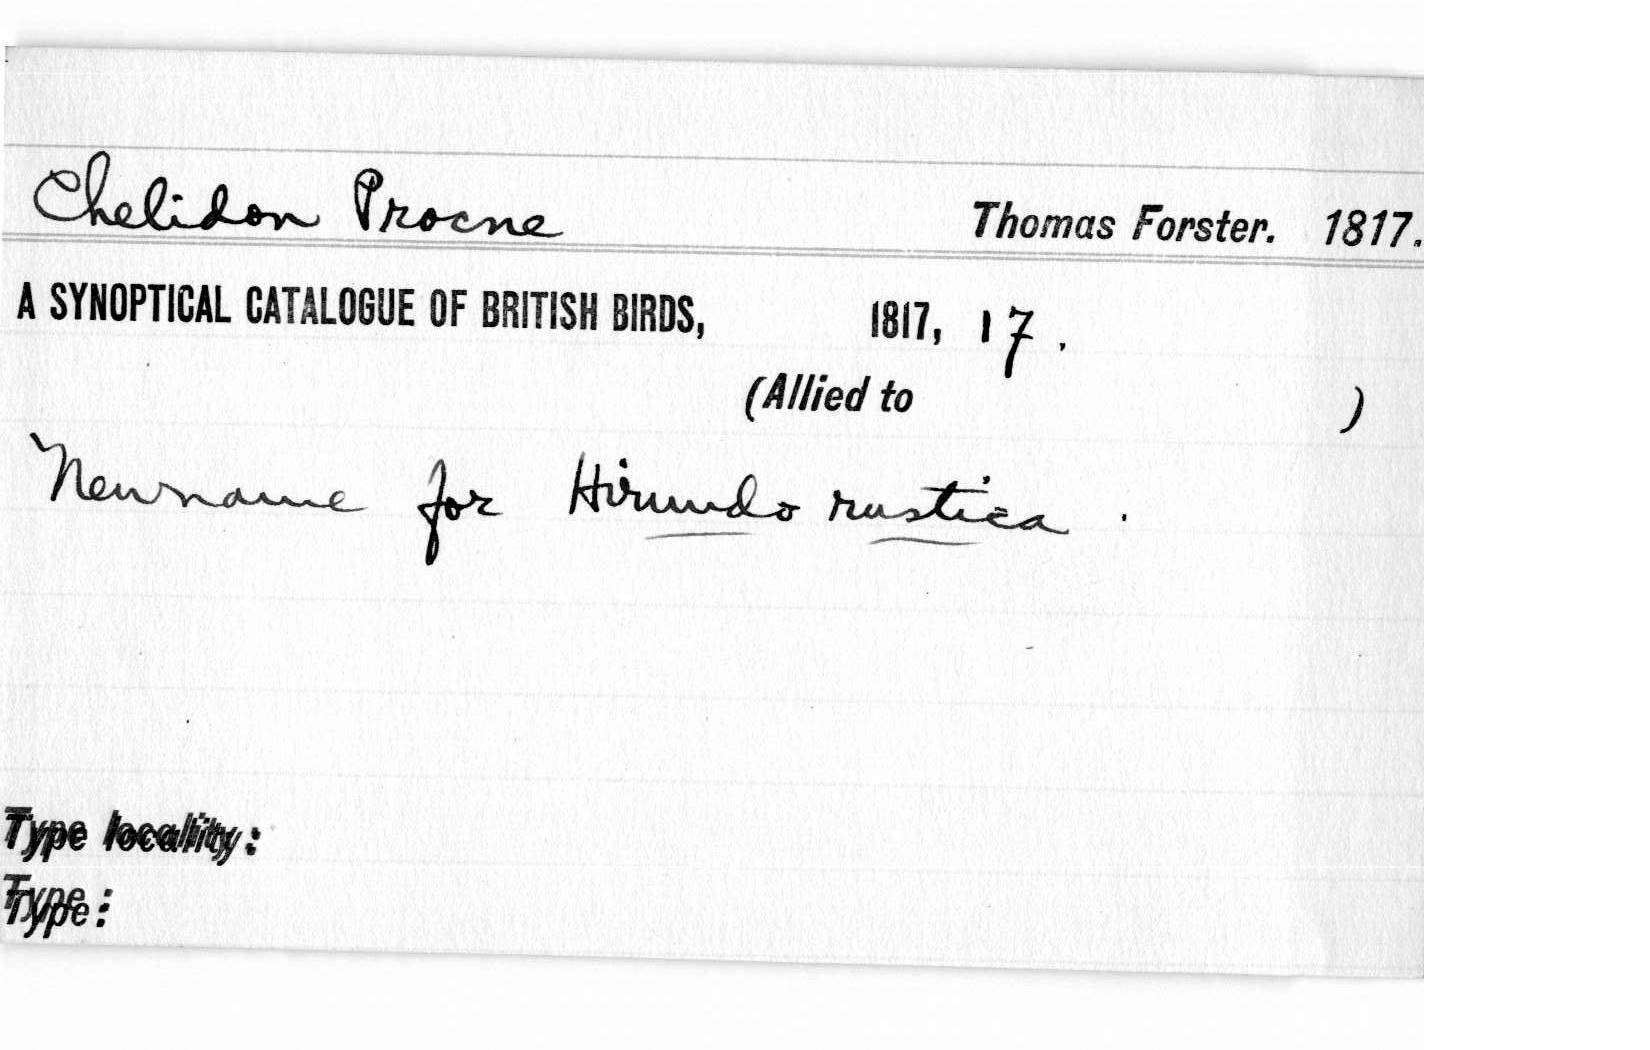 Chelidon Procne Thomas Forster. 1817.
A SYNOPTICAL CATALOGUE OF BRITISH BIRDS, 1817, 17.
(Allied to )
New name for Hirundo rustica.
Type locality:
Type: